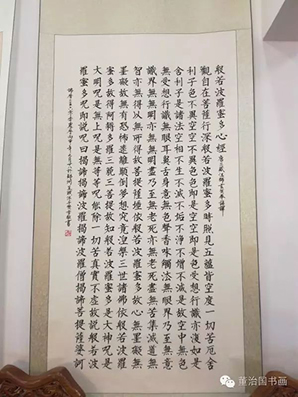 般若波羅蜜多心經 唐三藏法師玄奘奉詔譯
觀自在菩薩行深般若波羅蜜多時照見五蘊皆空度一切苦厄舍
利子色不異空空不異色色即是空空即是色受想行識亦復如是
舍利子是諸法空相不生不滅不垢不淨不增不減是故空中無色
無受想行識無眼耳鼻舌身意無色聲香味觸法無眼界乃至無意
識界無無明亦無無明盡乃至無老死亦無老死盡無苦集滅道無
智亦無得以無所得故菩提薩埵依般若波羅蜜多故心無罣礙無
罣礙故無有恐怖遠離顛倒夢想究竟涅槃三世諸佛依般若波羅
蜜多故得阿耨多羅三藐三菩提故知般若波羅蜜多是大神咒是
大明咒是無上咒是無等等咒能除一切苦真實不虛故說般若波
羅蜜多咒即說咒曰揭諦揭諦波羅揭諦波羅僧揭諦菩提薩婆訶
董治国书画